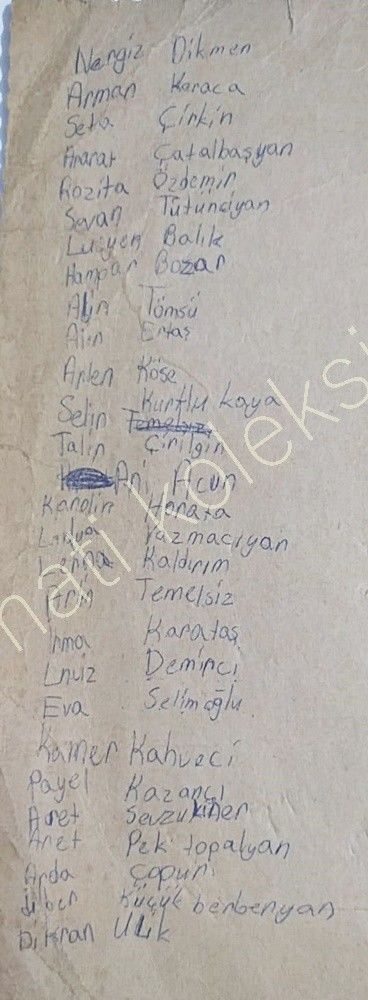 Nergiz Dikmen
Arman Karaca
Seta Çirkin
Ararat Çatalbaşyan
Rozita Özdemir
Sevan Tütünciyan
Lusyen Balık
Hampar Bozar
Alin Tömsü
Alin Ertaş
Arlen Köse
Selin Kurtlu kaya
Talin Çirilgin
Ani Acun
Karolin Horata
Yazmacıyan
Lerna Kaldırım
Arin Temelsiz
Irma Karataş
Lnuiz Demirci
Eva Selimoğlu
Kamer Kahveci
Payel Kazancı
Aret
Anet Pek topalyan
Arda Çopuri
Jilber Küçük berberyan
Dikran Ulik
nati koleksi